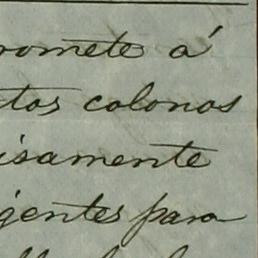 romete á
tos colonos
isamente
gentes para